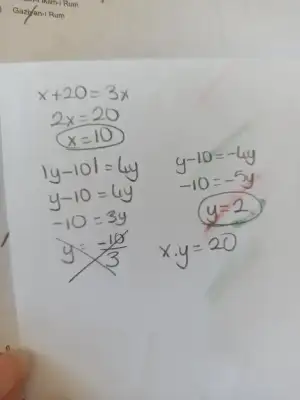 Gaziyan-ı Rum
x+20=3x
2x=20
x=10
|y-10|=4y
y-10=4y
-10=3y
y=-10/3
y-10=-4y
-10=-5y
y=2
x.y=20